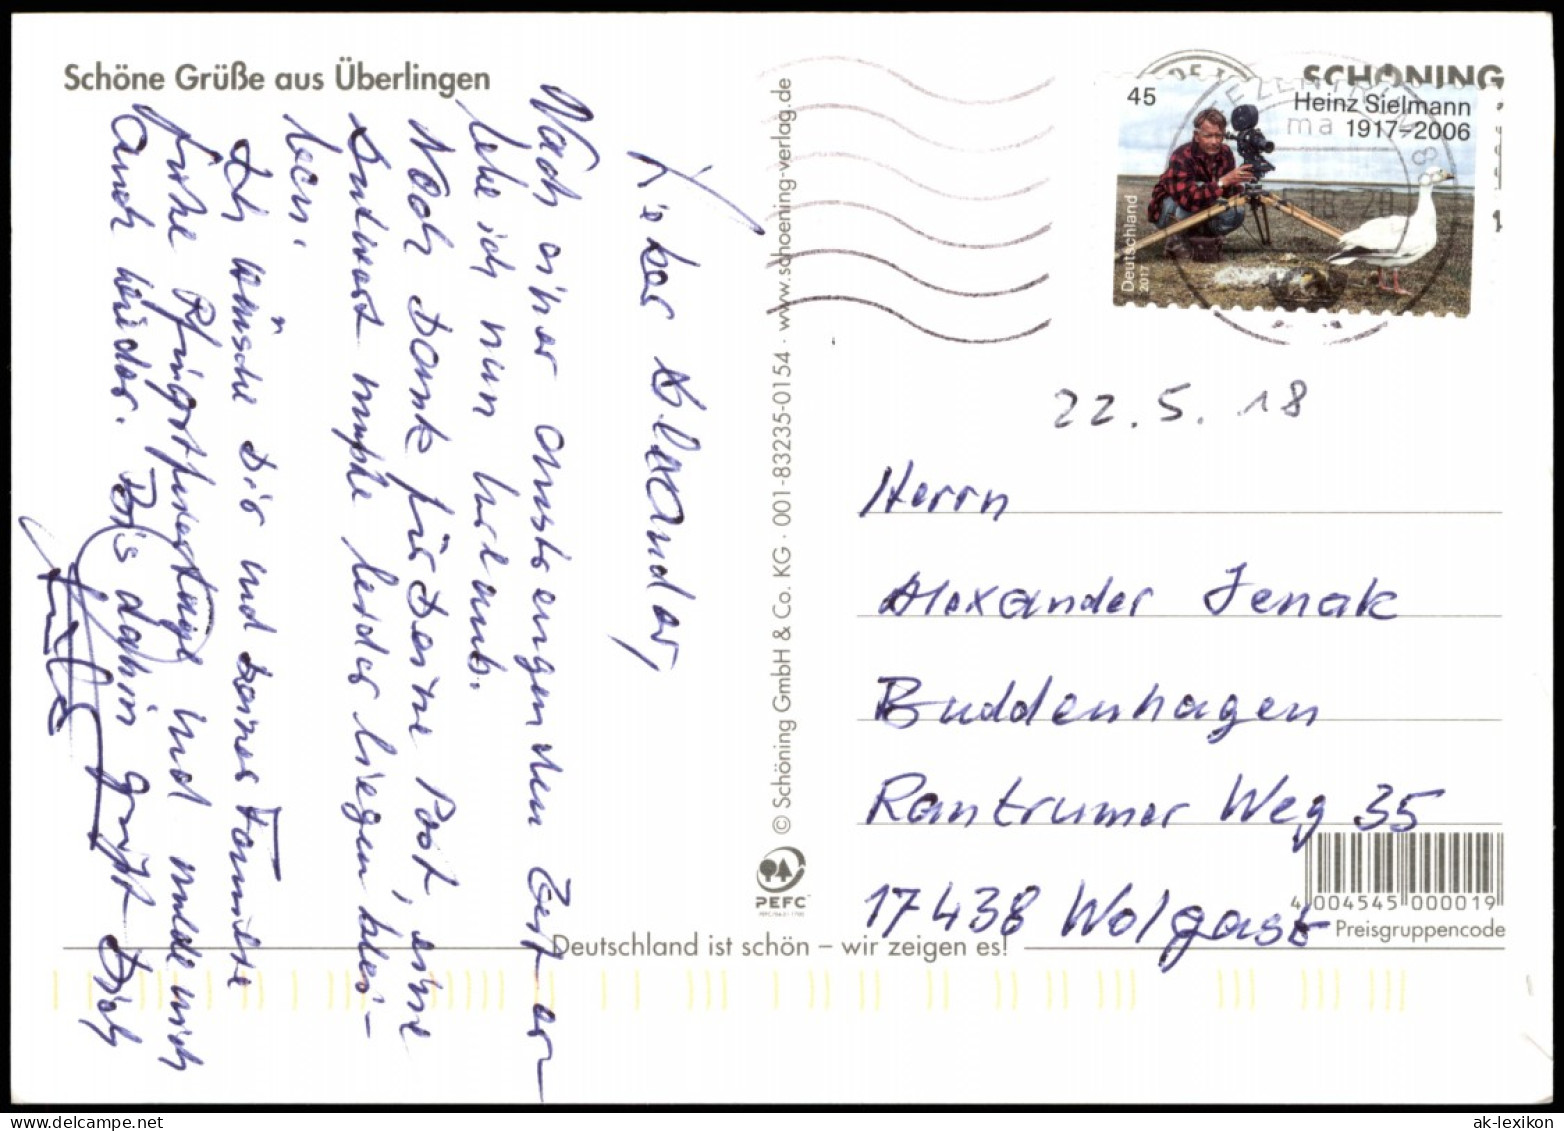 Schöne Grüße aus Überlingen
Lieber Alexander,
Nach einer anstrengenden Zeit er-
lebe ich nun Urlaub.
Hab Dank für Deine Post, eine
Antwort mußte leider liegen blei-
ben.
Ich wünsche Dir und Deiner Familie
frohe Pfingstfeiertage und melde mich
auch wieder. Bis dahin grüßt Dich
© Schöning GmbH & Co. KG · 001-83235-0154 · www.schoening-verlag.de
PEFC
SCHÖNING
45
Heinz Sielmann
1917–2006
Deutschland
2017
22.5.18
Herrn
Alexander Jenak
Buddenhagen
Rantrumer Weg 35
17438 Wolgast
4 004545 000019
Preisgruppencode
Deutschland ist schön – wir zeigen es!
ak-lexikon